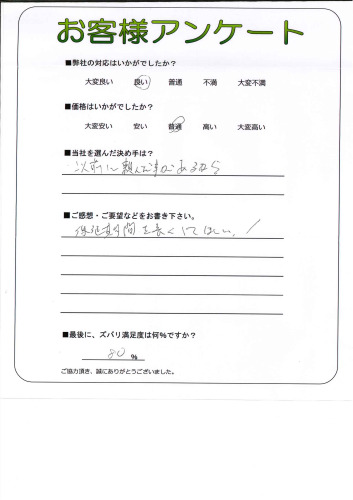 お客様アンケート
■弊社の対応はいかがでしたか？
大変良い 良い 普通 不満 大変不満
■価格はいかがでしたか？
大変安い 安い 普通 高い 大変高い
■当社を選んだ決め手は？
以前に頼んだ事があるから
■ご感想・ご要望などをお書き下さい。
保証期間を長くしてほしい！
■最後に、ズバリ満足度は何％ですか？
80 %
ご協力頂き、誠にありがとうございました。